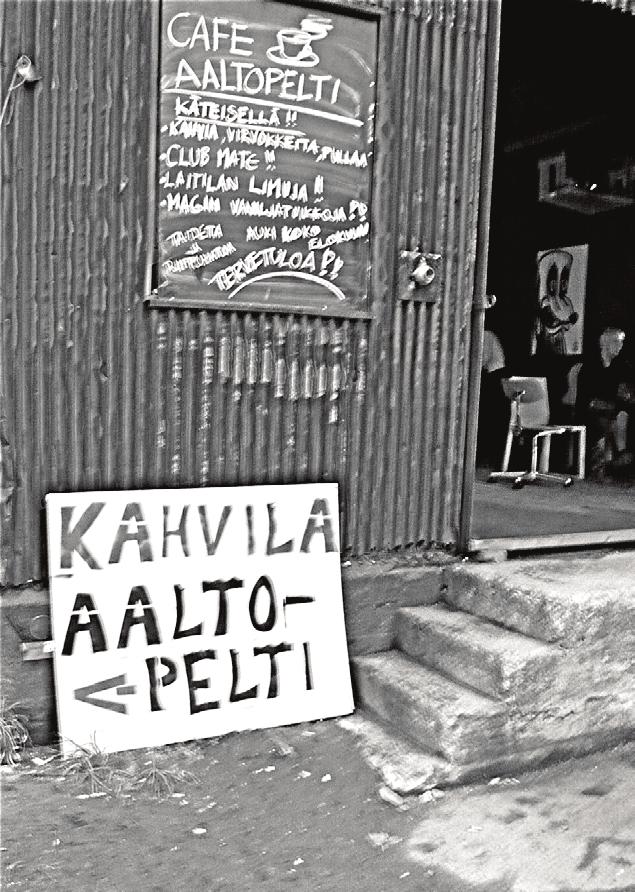 CAFE
AALTOPELTI
KÄTEISELLÄ !!
• KAHVIA, VIRVOKKEITA, PULLAA
• CLUB MATE !!
• LAITILAN LIMUJA !!
• MAGIN VANILJATUIKKOJA !!
TAIDETTA AUKI KOKO
JA ELOKUUN
TERVETULOA !!
KAHVILA
AALTO-
<- PELTI